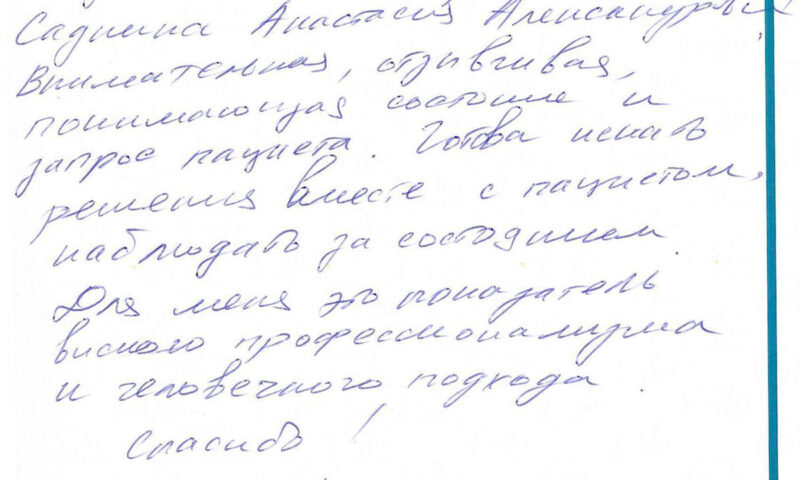 Саднина Анастасия Александровна
Внимательная, отзывчивая,
понимающая состояние и
запрос пациента. Готова искать
решения вместе с пациентом,
наблюдать за состоянием
Для меня это показатель
высокого профессионализма
и человечного подхода.
Спасибо!